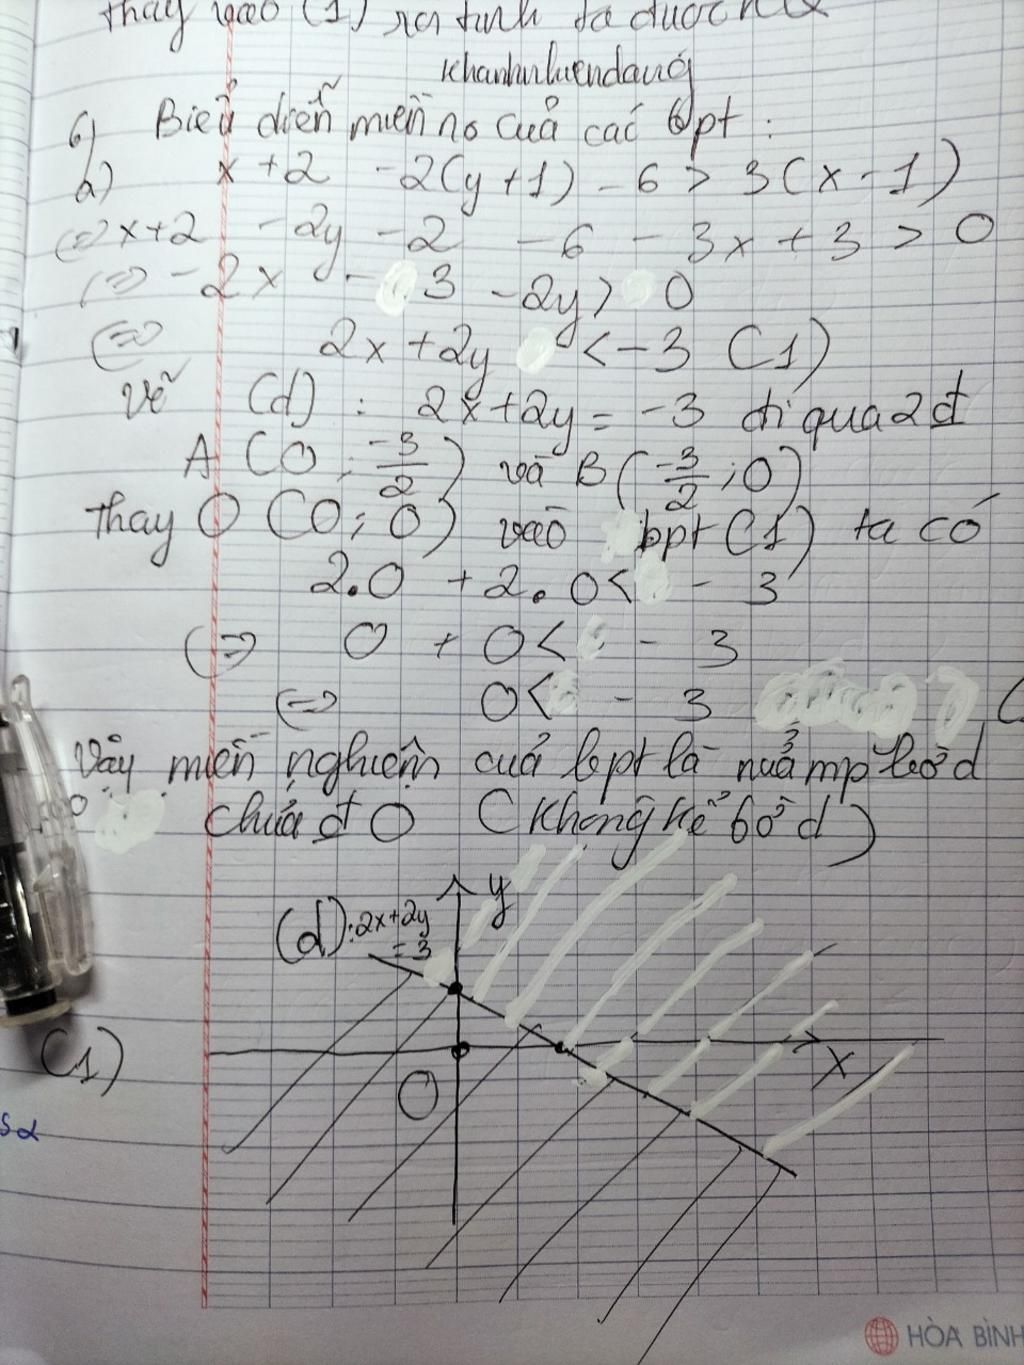 thay vào (1) rồi tính ta được
khanhnhuendaung
6) Biểu diễn miền no của các bpt :
a) x + 2 - 2(y + 1) - 6 > 3(x - 1)
<=> x + 2 - 2y - 2 - 6 - 3x + 3 > 0
<=> - 2x - 3 - 2y > 0
<=> 2x + 2y < - 3 (1)
Vẽ (d) : 2x + 2y = - 3 đi qua 2 đ
A (0 ; -3/2) và B (-3/2 ; 0)
Thay O (0 ; 0) vào bpt (1) ta có
2.0 + 2.0 < - 3
<=> 0 + 0 < - 3
<=> 0 < - 3
Vậy miền nghiệm của bpt là nửa mp bờ d
chứa đ O (không kể bờ d)
(d) : 2x + 2y = 3
y
x
O
(1)
HÒA BÌNH